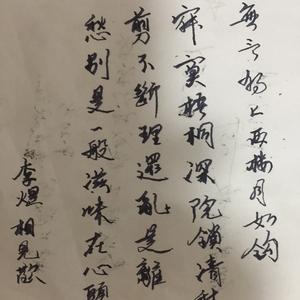 無言獨上西樓月如鈎
寂寞梧桐深院鎖清秋
剪不斷理還亂是離
愁別是一般滋味在心頭
李煜相見歡